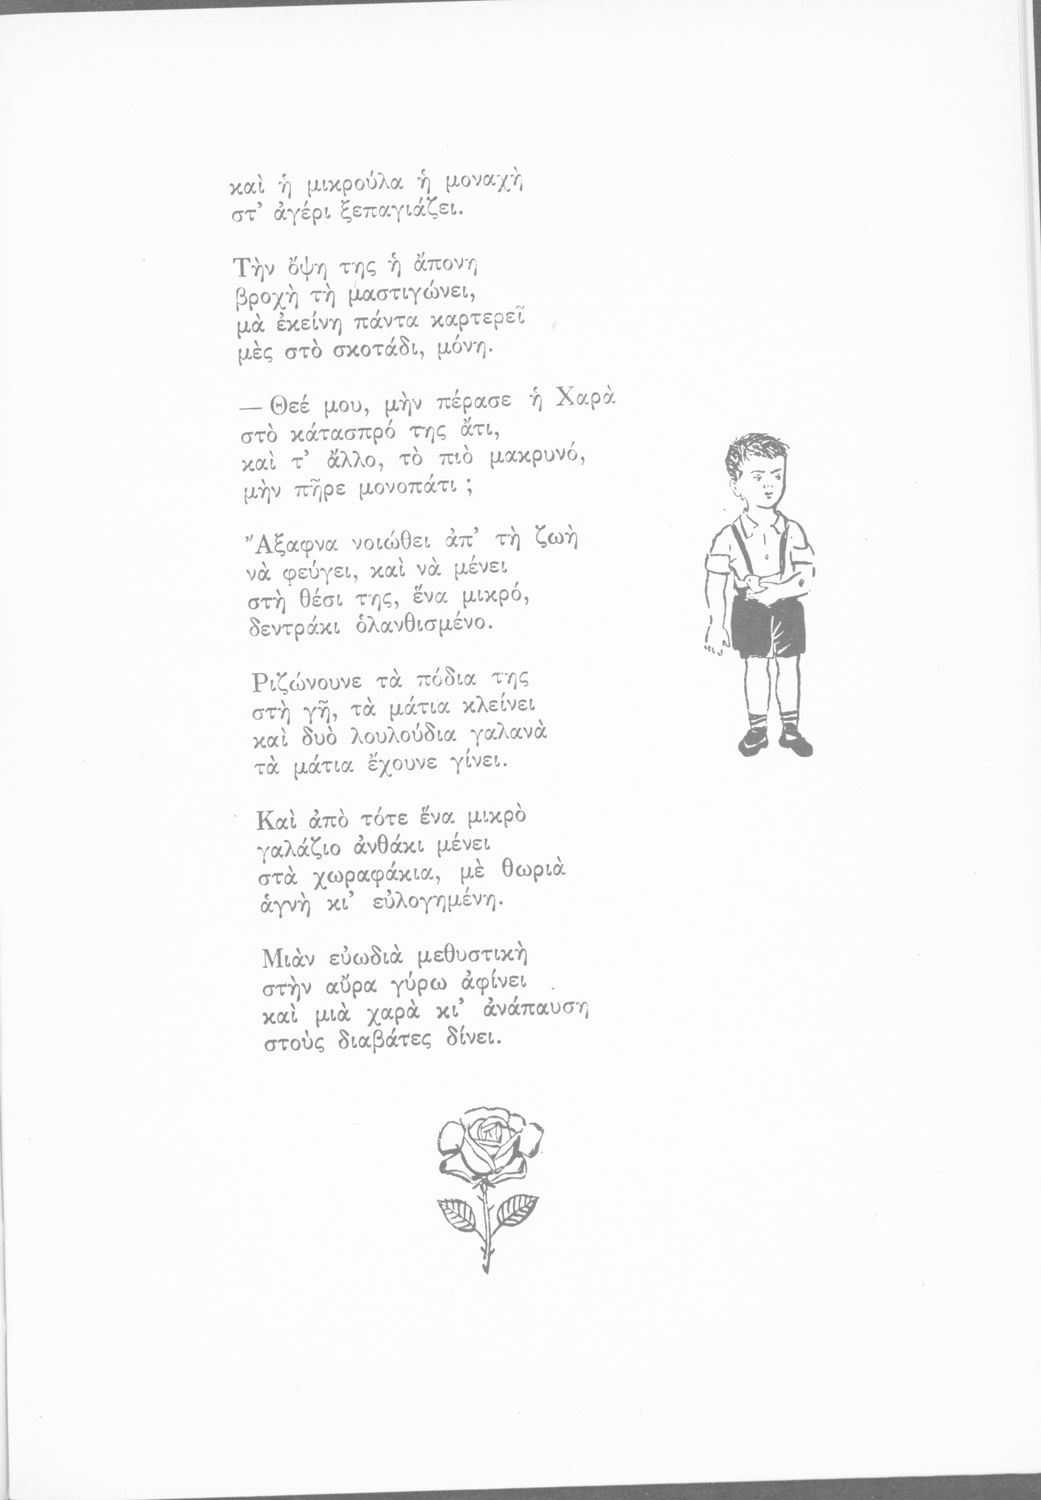 καὶ ἡ μικρούλα ἡ μοναχὴ
στ’ ἀγέρι ξεπαγιάζει.
Τὴν ὄψη της ἡ ἄπονη
βροχὴ τὴ μαστιγώνει,
μὰ ἐκείνη πάντα καρτερεῖ
μὲς στὸ σκοτάδι, μόνη.
— Θεέ μου, μὴν πέρασε ἡ Χαρὰ
στὸ κάτασπρό της ἄτι,
καὶ τ’ ἄλλο, τὸ πιὸ μακρυνό,
μὴν πῆρε μονοπάτι ;
Ἄξαφνα νοιώθει ἀπ’ τὴ ζωὴ
νὰ φεύγει, καὶ νὰ μένει
στὴ θέσι της, ἕνα μικρό,
δεντράκι ὁλανθισμένο.
Ριζώνουνε τὰ πόδια της
στὴ γῆ, τὰ μάτια κλείνει
καὶ δυὸ λουλούδια γαλανὰ
τὰ μάτια ἔχουνε γίνει.
Καὶ ἀπὸ τότε ἕνα μικρὸ
γαλάζιο ἀνθάκι μένει
στὰ χωραφάκια, μὲ θωριὰ
ἁγνὴ κι’ εὐλογημένη.
Μιὰν εὐωδιὰ μεθυστικὴ
στὴν αὔρα γύρω ἀφίνει
καὶ μιὰ χαρὰ κι’ ἀνάπαυση
στοὺς διαβάτες δίνει.